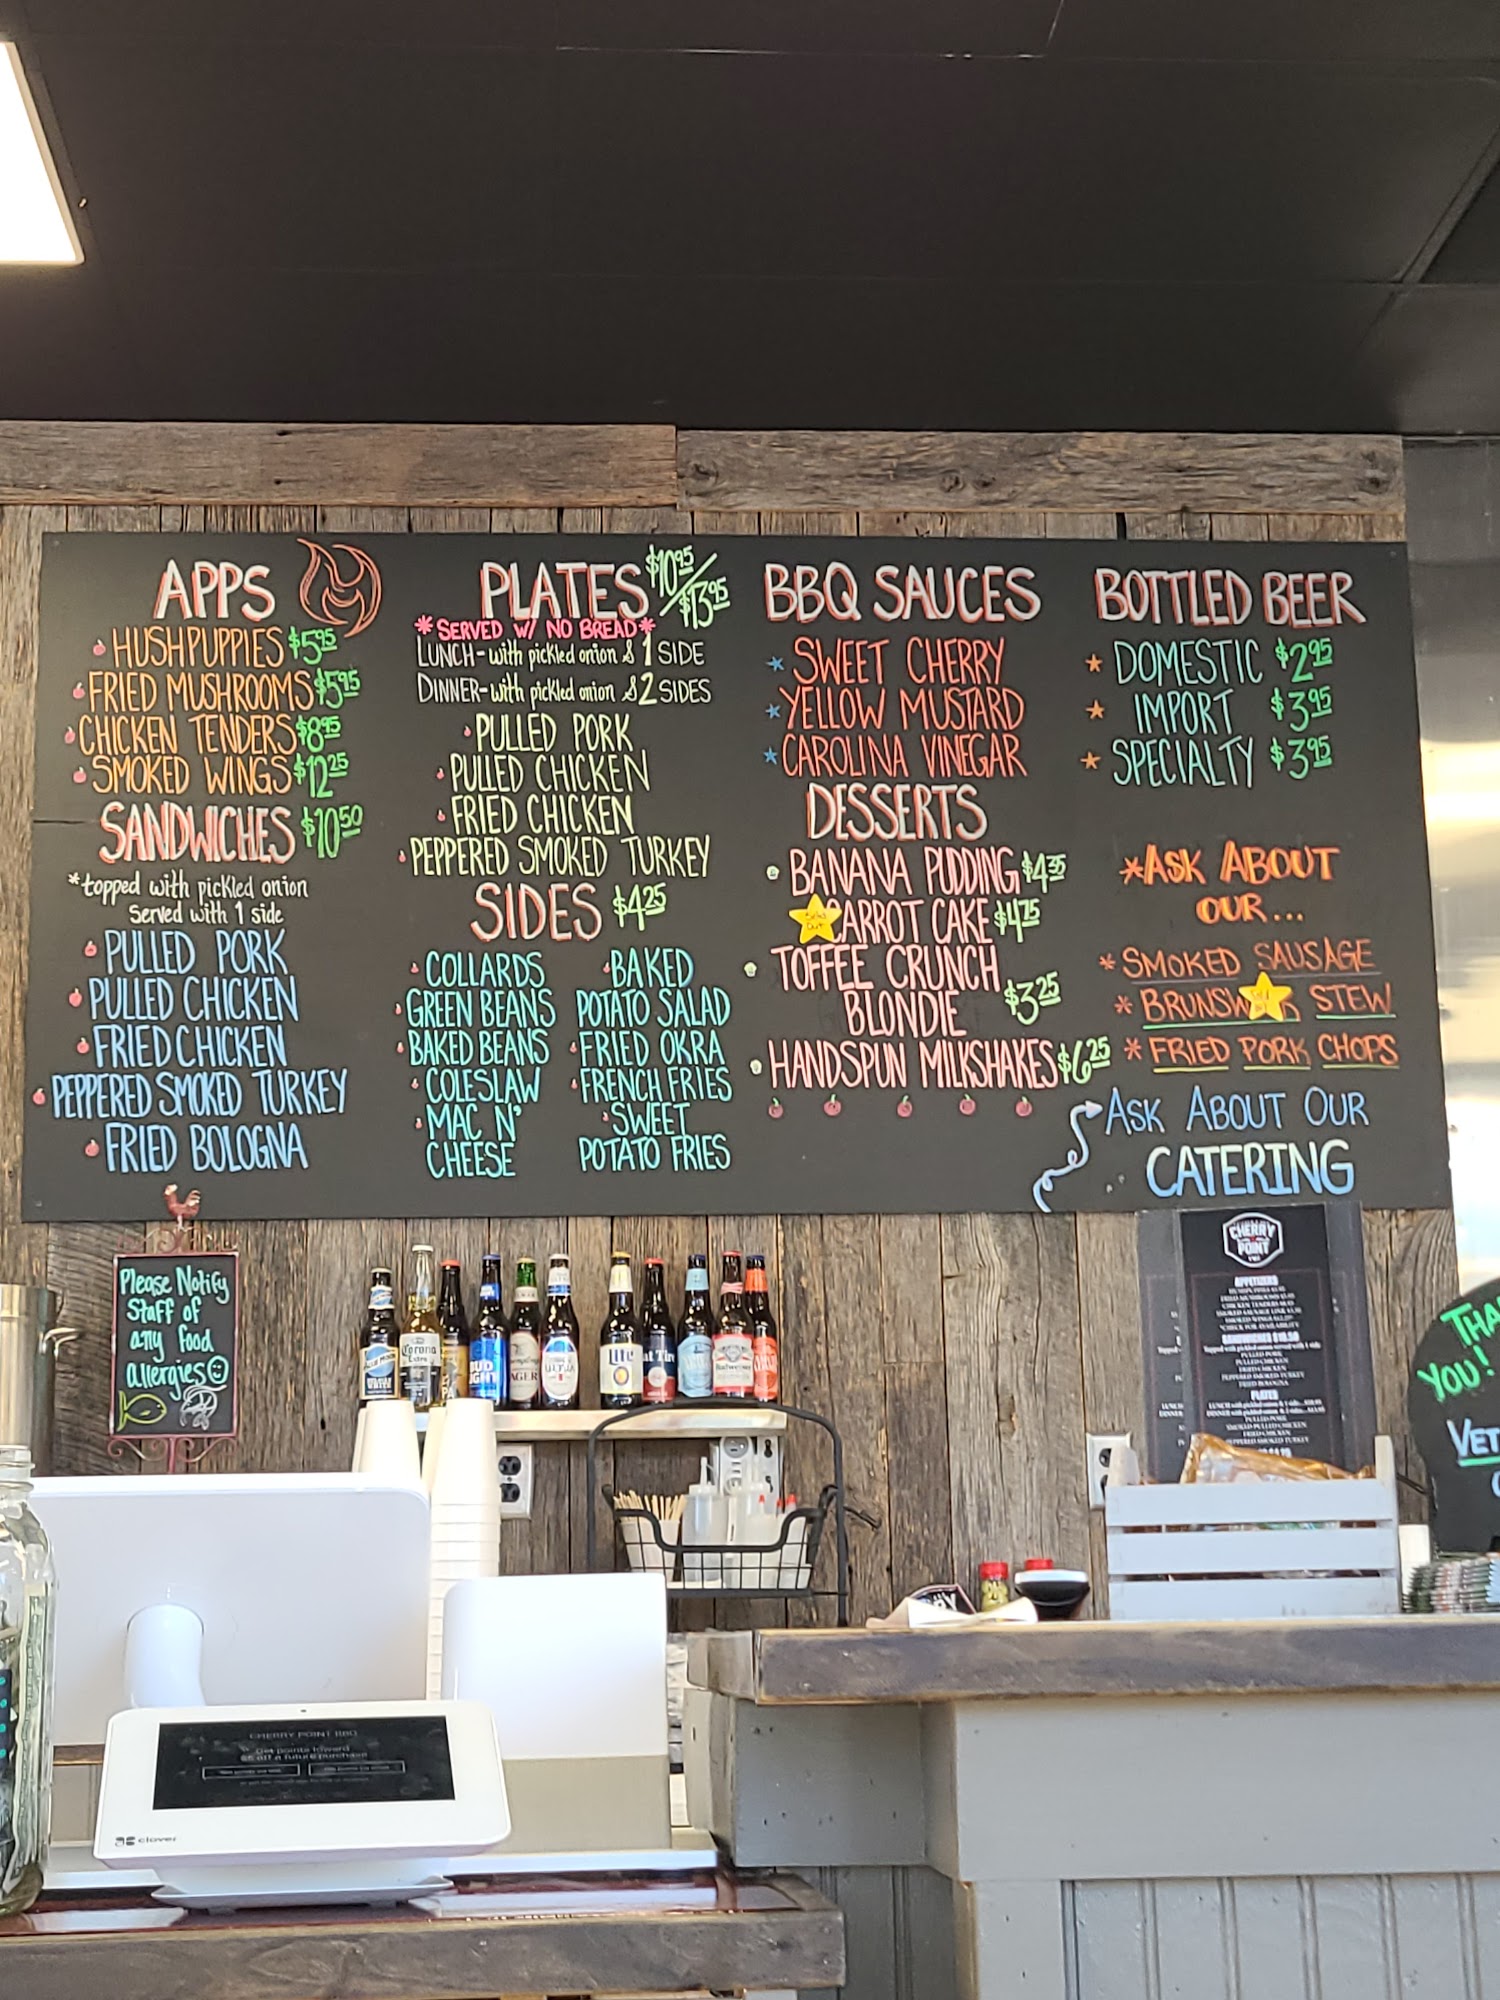 APPS
HUSHPUPPIES $5.95
FRIED MUSHROOMS $5.95
CHICKEN TENDERS $8.95
SMOKED WINGS $12.25
SANDWICHES $10.50
*topped with pickled onion
Served with 1 side
PULLED PORK
PULLED CHICKEN
FRIED CHICKEN
PEPPERED SMOKED TURKEY
FRIED BOLOGNA
PLATES $10.95/$13.95
*SERVED W/ NO BREAD*
LUNCH-with pickled onion & 1 SIDE
DINNER-with pickled onion & 2 SIDES
PULLED PORK
PULLED CHICKEN
FRIED CHICKEN
PEPPERED SMOKED TURKEY
SIDES $4.25
COLLARDS
GREEN BEANS
BAKED BEANS
COLESLAW
MAC N'
CHEESE
BAKED
POTATO SALAD
FRIED OKRA
FRENCH FRIES
SWEET
POTATO FRIES
BBQ SAUCES
SWEET CHERRY
YELLOW MUSTARD
CAROLINA VINEGAR
DESSERTS
BANANA PUDDING
Sold
Out
CARROT CAKE $4.75
TOFFEE CRUNCH
BLONDIE $3.25
HANDSPUN MILKSHAKES $6.25
BOTTLED BEER
DOMESTIC $2.95
IMPORT $3.95
SPECIALTY $3.95
*ASK ABOUT
OUR...
*SMOKED SAUSAGE
* STEW
* FRIED PORK CHOPS
ASK ABOUT OUR
CATERING
Please Notify
Staff of
any food
allergies
BLUE MOON
Corona
Extra
BUD
LIGHT
LAGER
ULTRA
Lite
Budweiser
CHERRY
POINT
APPETIZERS
SANDWICHES $10.50
PLATES
YOU!
CHERRY POINT BBQ
Get points toward
$5 off a future purchase
clover